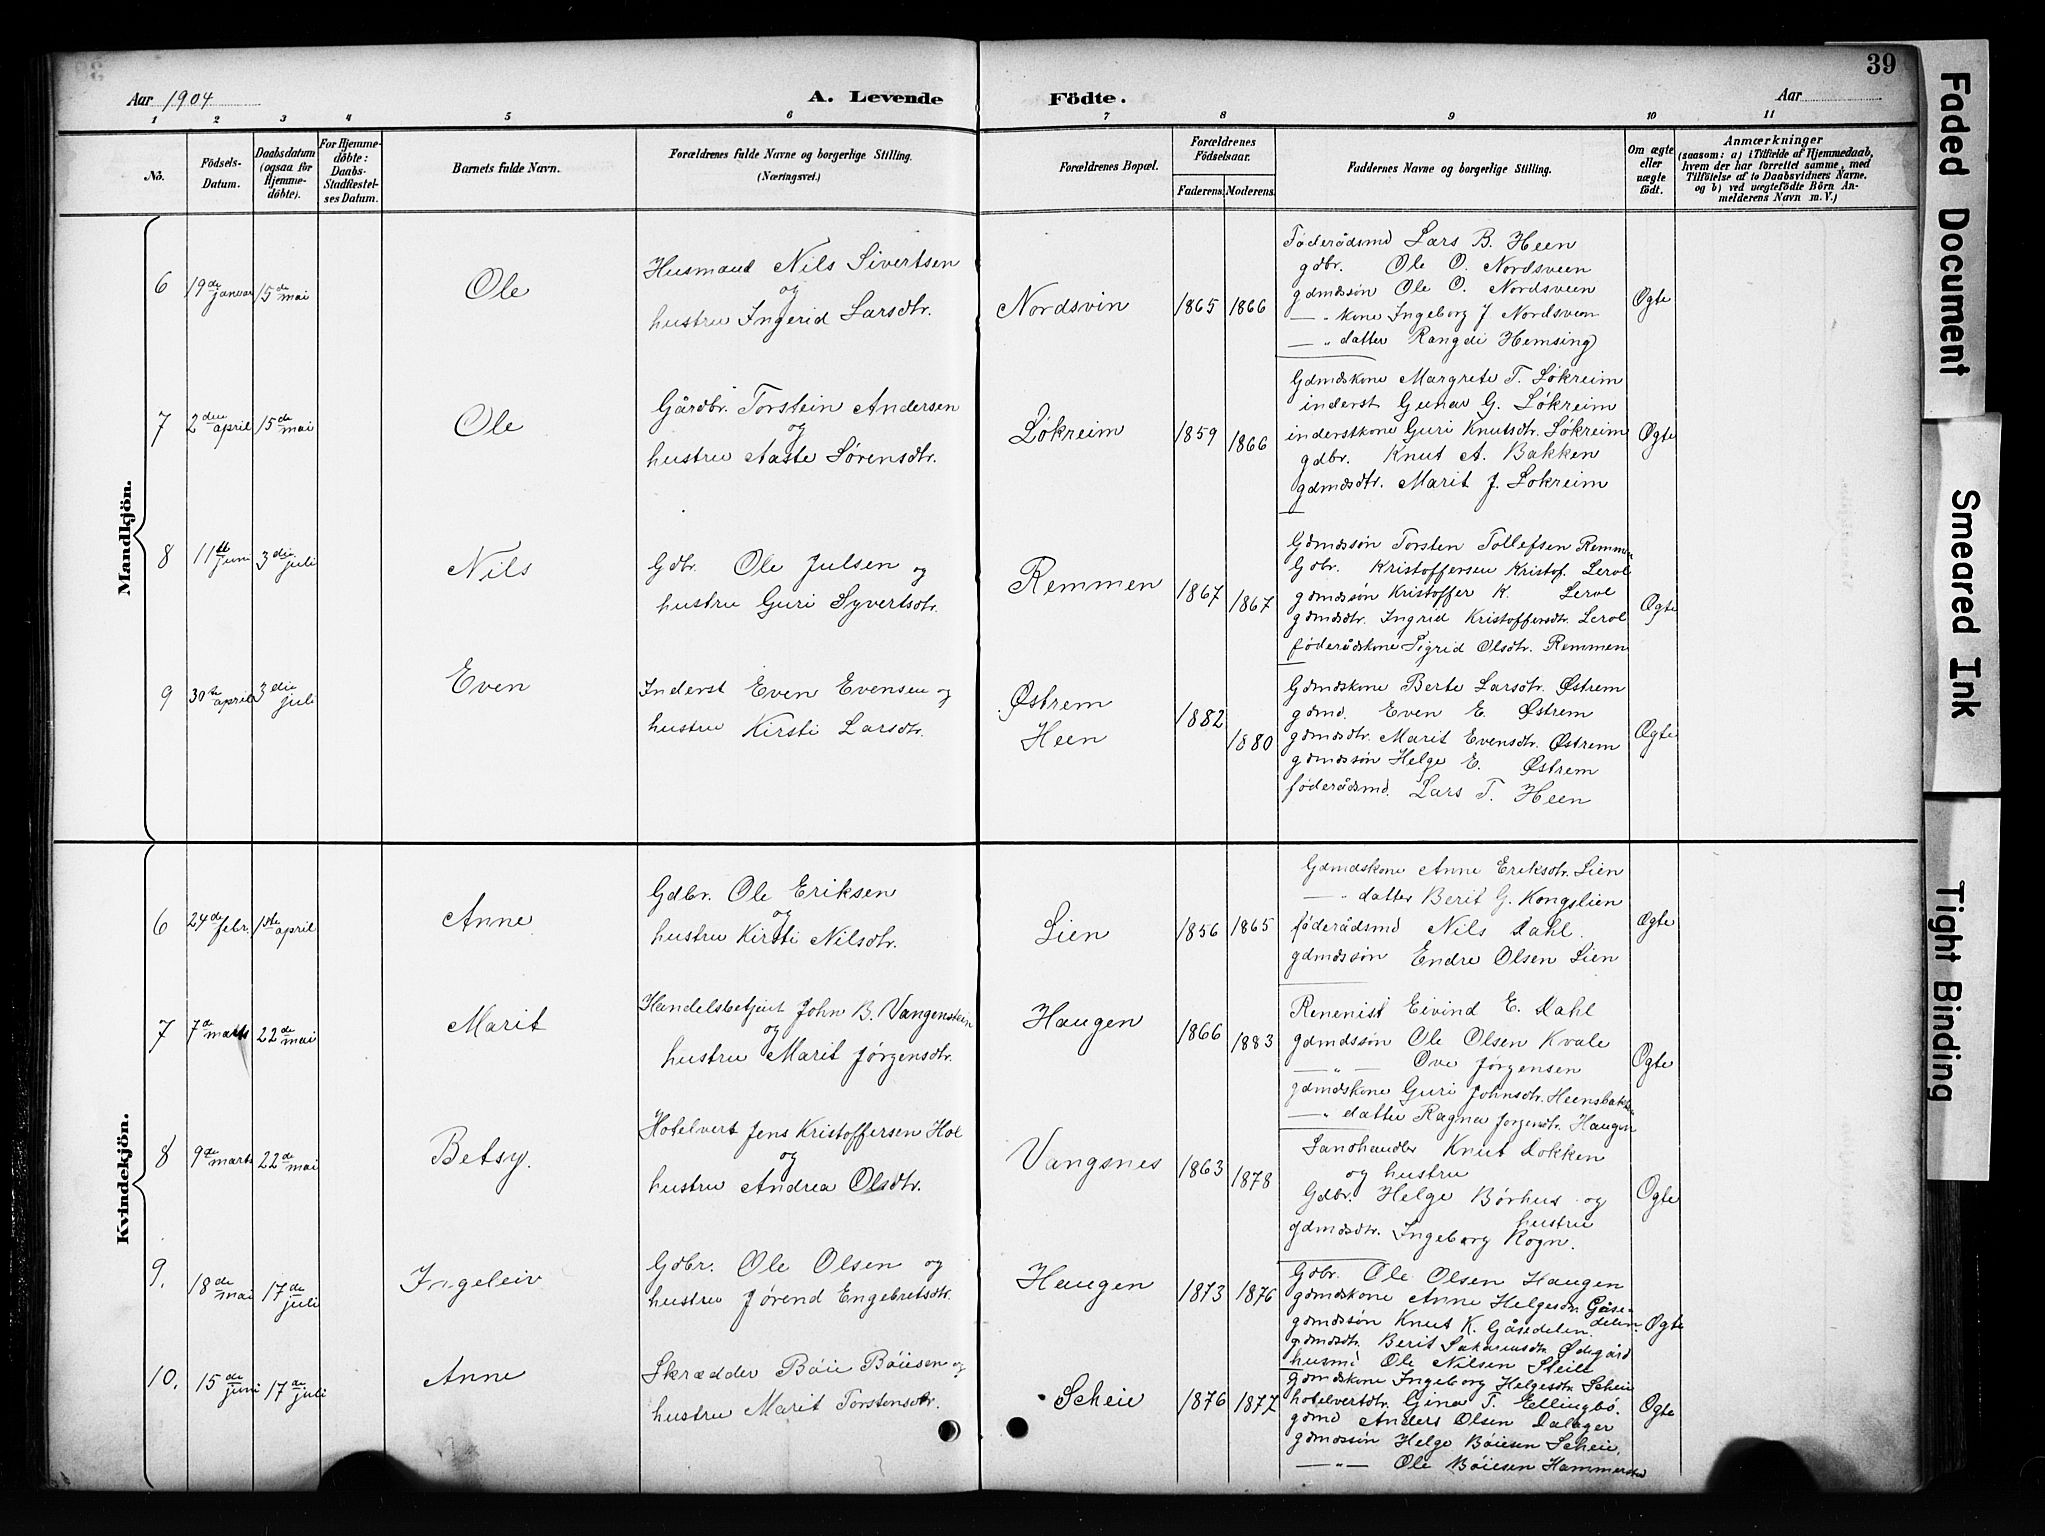 39
Aar 1904
A. Levende Födte.
Aar
1 2 3 4 5 6 7 8 9 10 11
No.
Födsels-Datum.
Daabsdatum (ogsaa för Hjemme-döbte).
For Hjemme-döbte: Daabs-Stadfæstel-ses Datum.
Barnets fulde Navn.
Forældrenes fulde Navne og borgerlige Stilling. (Næringsvei.)
Forældrenes Bopæl.
Forældrenes Födselsaar.
Faderens. Moderens.
Faddernes Navne og borgerlige Stilling.
Om ægte eller uægte födt.
Anmærkninger
(saasom: a) i Tilfælde af Hjemmedaab, hvem der har forrettet samme, med Tilföielse af to Daabsvidners Navne. og b) ved uægtefödte Börn An-melderens Navn m. V.)
Mandkjön.
6 19de januar 15de mai
Ole
Husmand Nils Sivertsen
og
hustru Ingerid Larsdtr.
Nordsvin 1865 1866
Föderådsmd Lars B. Heen
gdbr. Ole O. Nordsveen
gdmdssøn Ole O. Nordsveen
— „ kone Ingeborg J. Nordsveen
— „ datter Rangdi Hemsing
Øgte
7 2den april 15de mai
Ole
Gårdbr. Torstein Andersen
og
hustru Aaste Sørensdtr.
Løkreim 1859 1866
Gdmdskone Margrete T. Løkreim
inderst Gunar G. Løkreim
inderstkone Guri Knutsdtr. Løkreim
gdbr. Knut A. Bakken
gdmdsdtr. Marit J. Løkreim
Øgte
8 11te juni 3die juli
Nils
Gdbr. Ole Julsen og
hustru Guri Syvertsdtr.
Remmen 1867 1867
Gdmdssøn Torsten Tollefsen Remmen
Gdbr. Kristoffersen Kristof. Lerol
gdmdssøn Kristoffer K. Lerol
gdmdsdtr. Ingrid Kristoffersdtr. Lerol
føderådskone Sigrid Olsdtr. Remmen
Øgte
9 30te april 3die juli
Even
Inderst Even Evensen og
hustru Kirsti Larsdtr.
Østrem
Heen
1882 1880
Gdmdskone Berte Larsdtr. Østrem
gdmd. Even E. Østrem
gdmdsdtr. Marit Evensdtr. Østrem
gdmdssøn Helge E. Østrem
føderådsmd. Lars T. Heen
Øgte
Kvindekjön.
6 24de febr. 1ste april
Anne
Gdbr. Ole Eriksen
og
hustru Kirsti Nilsdtr.
Lien 1856 1865
Gdmdskone Anne Eriksdtr. Lien
— „ datter Berit G. Kongslien
føderådsmd Nils Dahl.
gdmdssøn Endre Olsen Lien
Øgte
7 7de marts 22de mai
Marit
Handelsbetjent John B. Vangenstein
og
hustru Marit Jørgensdtr.
Haugen 1866 1883
Eivind E. Dahl
gdmdssøn Ole Olsen Kvale
— „ — Ove Jørgensen
gdmdskone Guri Johnsdtr. Heensbakken
— „ datter Ragna Jørgensdtr. Haugen
Øgte
8 9de marts 22de mai
Betsy.
Hotelvert Jens Kristoffersen Hol
og
hustru Andrea Olsdtr.
Vangsnes 1863 1878
Landhandler Knut Dokken
og hustru
Gdbr. Helge Børhus og
hustru
gdmdsdtr. Ingeborg Rogn.
Øgte
9. 18de mai 17de juli
Ingeleiv
Gdbr. Ole Olsen og
hustru Jørend Engebretsdtr.
Haugen 1873 1876
Gdbr. Ole Olsen Haugen
gdmdskone Anne Helgesdtr. Gåse-
delen.
gdmdssøn Knut K. Gåsedelen
gdmdsdtr. Berit Sakariasdtr. Ødegård
husmd Ole Nilsen Steile
Øgte
10. 15de juni 17de juli
Anne
Skrædder Bøie Bøiesen og
hustru Marit Torstensdtr.
Scheie 1876 1877
gdmdskone Ingeborg Helgesdtr. Scheie
hotelvertsdtr. Gina T. Ellingbø.
gdmd Anders Olsen Dalager
gdmdssøn Helge Bøiesen Scheie.
— „ — Ole Bøiesen
Øgte
Faded Document
Smeared Ink
Tight Binding